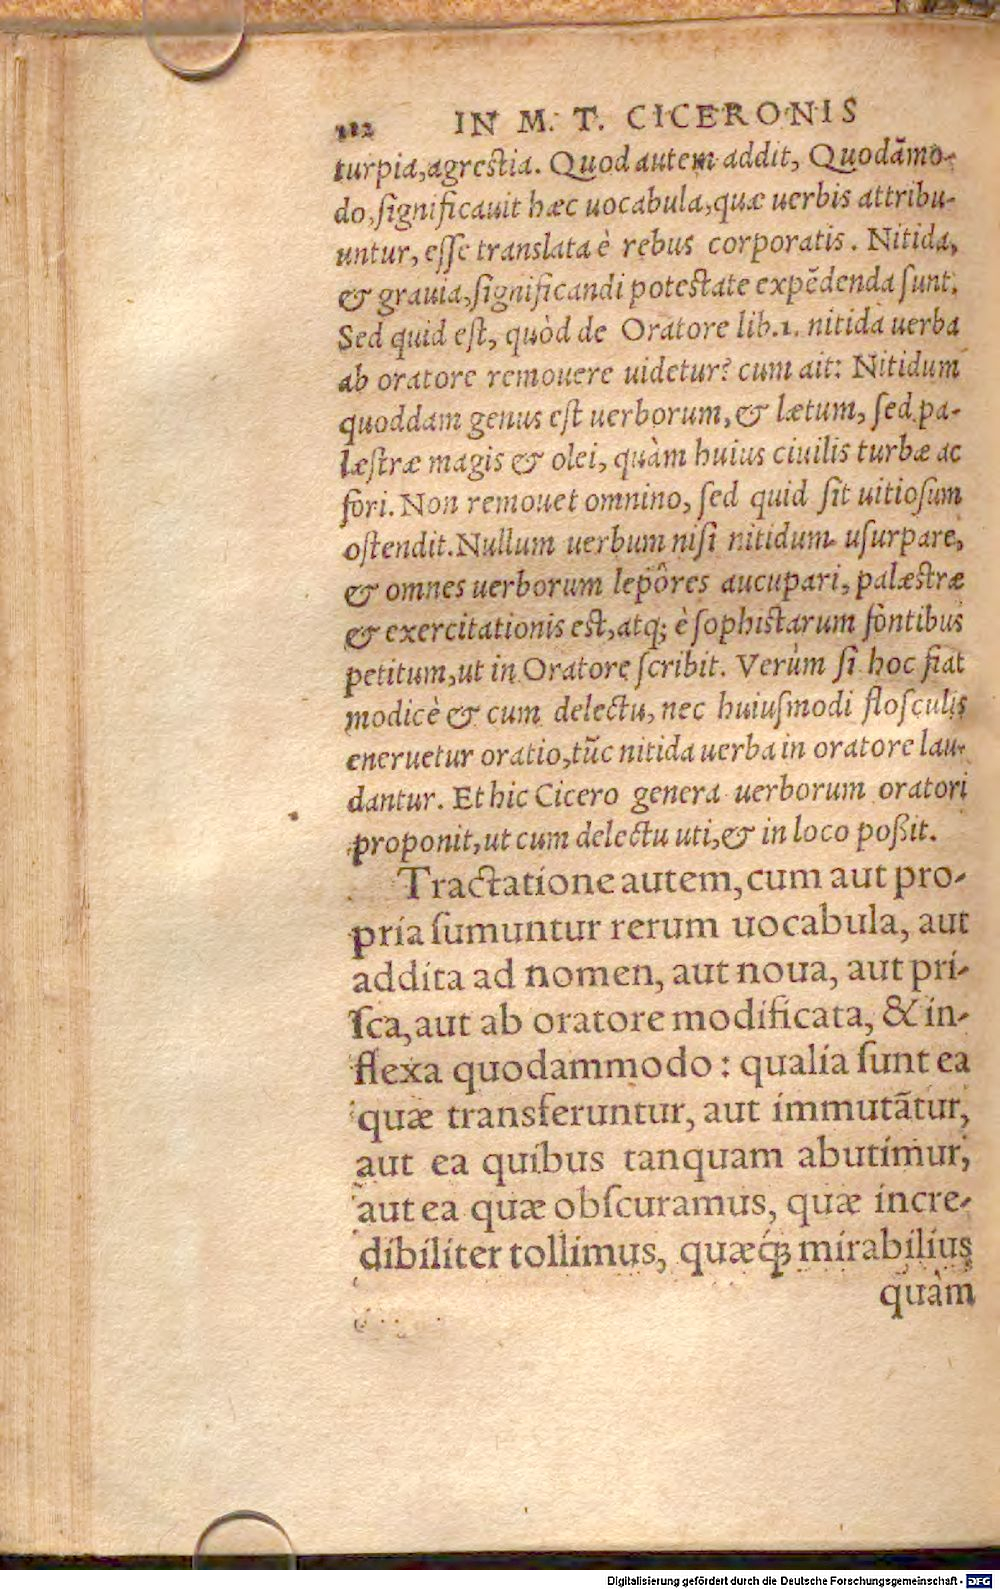 182 IN M. T. CICERONIS
turpia, agrestia. Quod autem addit, Quodãmo-
do, ſignificauit hæc uocabula, quæ uerbis attribu-
untur, eſſe translata è rebus corporatis. Nitida,
& grauia, ſignificandi poteſtate expẽdenda ſunt.
Sed quid eſt, quòd de Oratore lib.1. nitida uerba
ab oratore remouere uidetur? cum ait: Nitidum
quoddam genus eſt uerborum, & lætum, ſed pa-
læſtræ magis & olei, quàm huius ciuilis turbæ ac
fori. Non remouet omnino, ſed quid ſit uitioſum
oſtendit. Nullum uerbum niſi nitidum uſurpare,
& omnes uerborum lepôres aucupari, palæſtræ
& exercitationis eſt, atq; è ſophiſtarum fontibus
petitum, ut in Oratore ſcribit. Verùm ſi hoc fiat
modicè & cum delectu, nec huiuſmodi floſculis
eneruetur oratio, tũc nitida uerba in oratore lau-
dantur. Et hic Cicero genera uerborum oratori
proponit, ut cum delectu uti, & in loco poßit.
Tractatione autem, cum aut pro-
pria ſumuntur rerum uocabula, aut
addita ad nomen, aut noua, aut pri-
ſca, aut ab oratore modificata, & in-
flexa quodammodo: qualia ſunt ea
quæ transferuntur, aut immutãtur,
aut ea quibus tanquam abutimur,
aut ea quæ obſcuramus, quæ incre-
dibiliter tollimus, quæq́; mirabilius
quàm
Digitalisierung gefördert durch die Deutsche Forschungsgemeinschaft - DFG